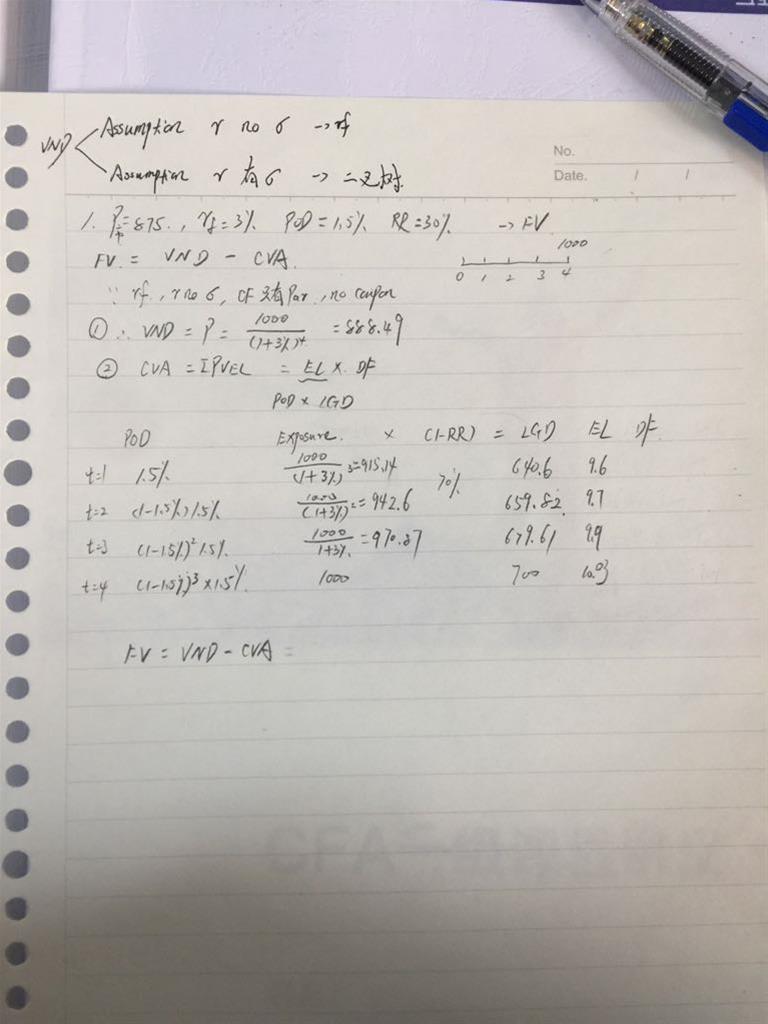 No.
Date. / /
VND
Assumption r no σ → rf
Assumption r 有 σ → 二叉树.
1. P市=875., rf=3% POD=1.5% RR=30% → FV
FV = VND - CVA.
1000
0 1 2 3 4
∵ rf, r no σ, CF 只有 Par, no coupon
① ∴ VND = P = 1000/(1+3%)^4 = 888.49
② CVA = ΣPVEL = EL × DF
POD × LGD
POD Exposure. × (1-RR) = LGD EL DF
t=1 1.5% 1000/(1+3%)^3=915.14 70% 640.6 9.6
t=2 (1-1.5%)1.5% 1000/(1+3%)^2=942.6 659.82 9.7
t=3 (1-1.5%)^2 1.5% 1000/1+3% =970.87 679.61 9.9
t=4 (1-1.5%)^3 ×1.5% 1000 700 10.03
FV = VND - CVA =